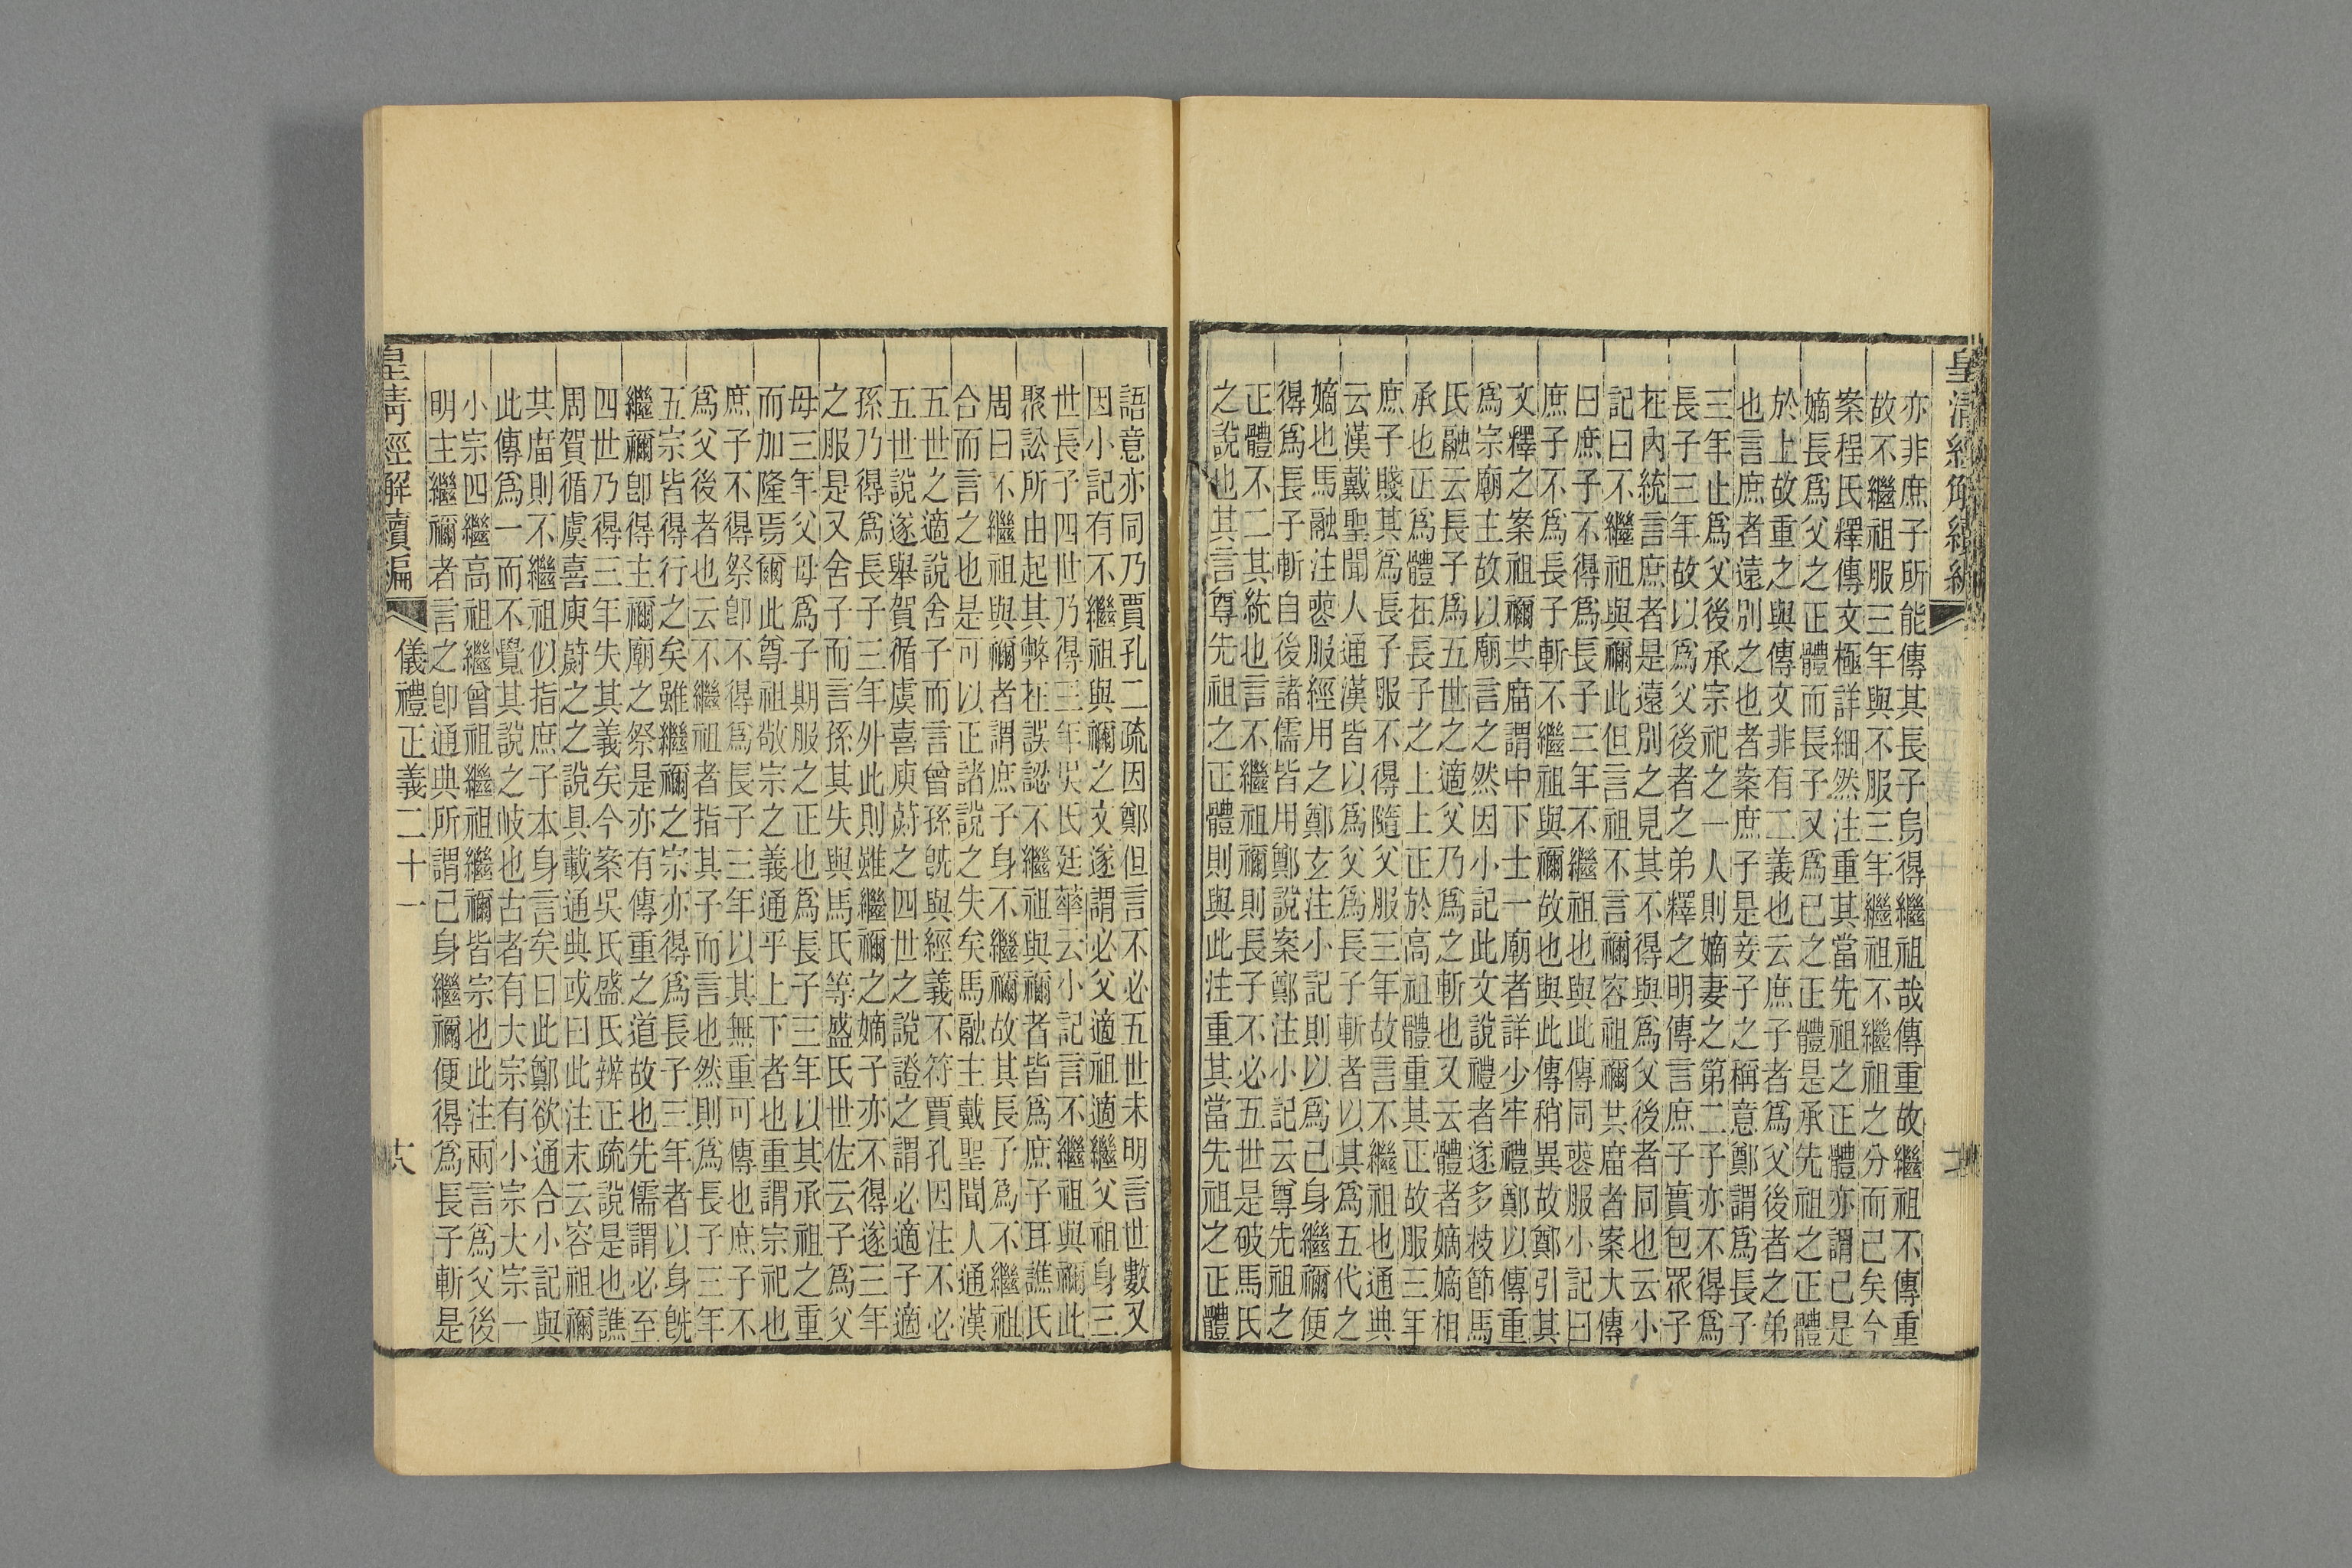 皇清經解續編
亦非庶子所能傳其長子烏得繼祖哉傳重故繼祖不傳重
故不繼祖服三年與不服三年繼祖不繼祖之分而已矣今
案程氏釋傳文極詳細然注重其當先祖之正體亦謂已是
嫡長爲父之正體而長子又爲已之正體是承先祖之正體
於上故重之與傳文非有二義也云庶子者爲父後者之弟
也言庶者遠別之也者案庶子是妾子之稱意鄭謂爲長子
三年止爲父後承宗祀之一人則嫡妻之第二子亦不得爲
長子三年故以爲父後者之弟釋之明傳言庶子實包眾子
在內統言庶者是遠別之見其不得與爲父後者同也云小
記曰不繼祖與禰此但言祖不言禰容祖禰共庿者案大傳
曰庶子不得爲長子三年不繼祖也與此傳同喪服小記曰
庶子不爲長子斬不繼祖與禰故也與此傳稍異故鄭引其
文釋之案祖禰共庿謂中下士一廟者詳少牢禮鄭以傳重
爲宗廟主故以廟言之然因小記此文說禮者遂多枝節馬
氏融云長子爲五世之適父乃爲之斬也又云體者嫡嫡相
承也正爲體在長子之上上正於高祖體重其正故服三年
庶子賤其爲長子服不得隨父服三年故言不繼祖也通典
云漢戴聖聞人通漢皆以爲父爲長子斬者以其爲五代之
嫡也馬融注喪服經用之鄭玄注小記則以爲已身繼禰便
得爲長子斬自後諸儒皆用鄭說案鄭注小記云尊先祖之
正體不二其統也言不繼祖禰則長子不必五世是破馬氏
之說也其言尊先祖之正體則與此注重其當先祖之正體
語意亦同乃賈孔二疏因鄭但言不必五世未明言世數又
因小記有不繼祖與禰之文遂謂必父適祖適繼父祖身三
世長子四世乃得三年吳氏廷華云小記言不繼祖與禰此
聚訟所由起其弊在誤認不繼祖與禰者皆爲庶子耳譙氏
周曰不繼祖與禰者謂庶子身不繼禰故其長子爲不繼祖
合而言之也是可以正諸說之失矣馬融主戴聖聞人通漢
五世之適說舍子而言曾孫旣與經義不符賈孔因注不必
五世說遂舉賀循虞喜庾蔚之四世之說證之謂必適子適
孫乃得爲長子三年外此則雖繼禰之嫡子亦不得遂三年
之服是又舍子而言孫其失與馬氏等盛氏世佐云子爲父
母三年父母爲子期服之正也爲長子三年以其承祖之重
而加隆焉爾此尊祖敬宗之義通乎上下者也重謂宗祀也
庶子不得祭卽不得爲長子三年以其無重可傳也庶子不
爲父後者也云不繼祖者指其子而言也然則爲長子三年
五宗皆得行之矣雖繼禰之宗亦得爲長子三年者以身旣
繼禰卽得主禰廟之祭是亦有傳重之道故也先儒謂必至
四世乃得三年失其義矣今案吳氏盛氏辨正疏說是也譙
周賀循虞喜庾蔚之之說具載通典或曰此注末云容祖禰
其庿則不繼祖似指庶子本身言矣曰此鄭欲通合小記與
此傳爲一而不覺其說之岐也古者有大宗有小宗大宗一
小宗四繼高祖繼曾祖繼祖繼禰皆宗也此注兩言爲父後
明主繼禰者言之卽通典所謂已身繼禰便得爲長子斬是
皇清經解續編
儀禮正義二十一
十八